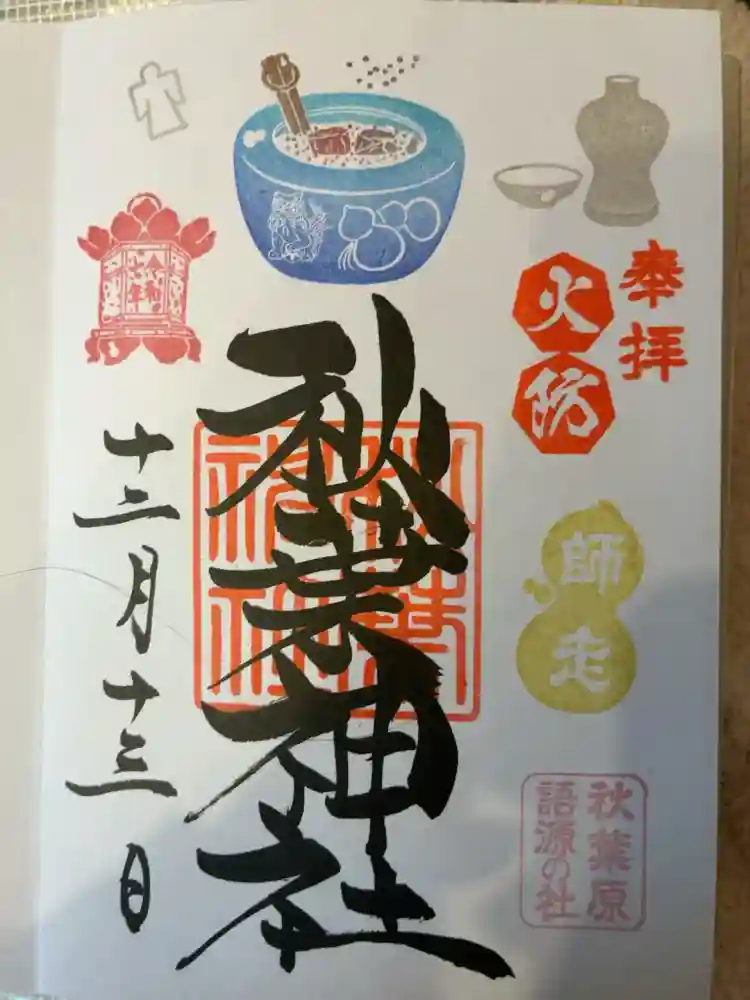 奉拝
火防
師走
秋葉原
語源の社
秋葉神社
令和
七年
十二月十三日